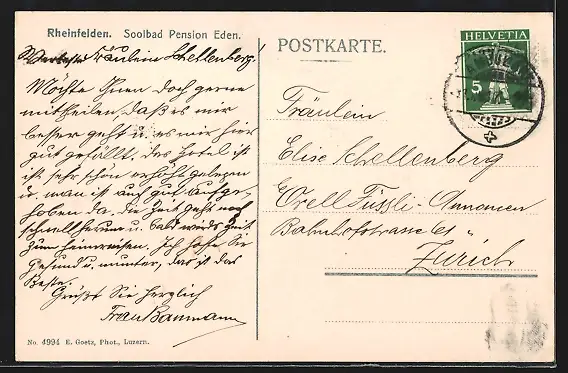 Rheinfelden. Soolbad Pension Eden.
Wertestes Fräulein Schellenberg!
Möchte Ihnen doch gerne
mitteilen, daß es mir
besser geht u. es mir hier
gut gefällt. das Hotel ist
ist sehr schön erhöht gelegen
u. man ist auch gut aufge-
hoben da, die Zeit geht noch
schnell herum u. bald wirds Zeit
zum heimreisen. Ich hoffe Sie
Gesund u. munter, das ist das
Beste.
Grüßt Sie herzlich
Frau Baumann
No. 4994 E. Goetz, Phot., Luzern.
POSTKARTE.
HELVETIA
5
Fräulein
Elise Schellenberg
Orell Füssli-Annoncen
Bahnhofstrasse 61
Zürich